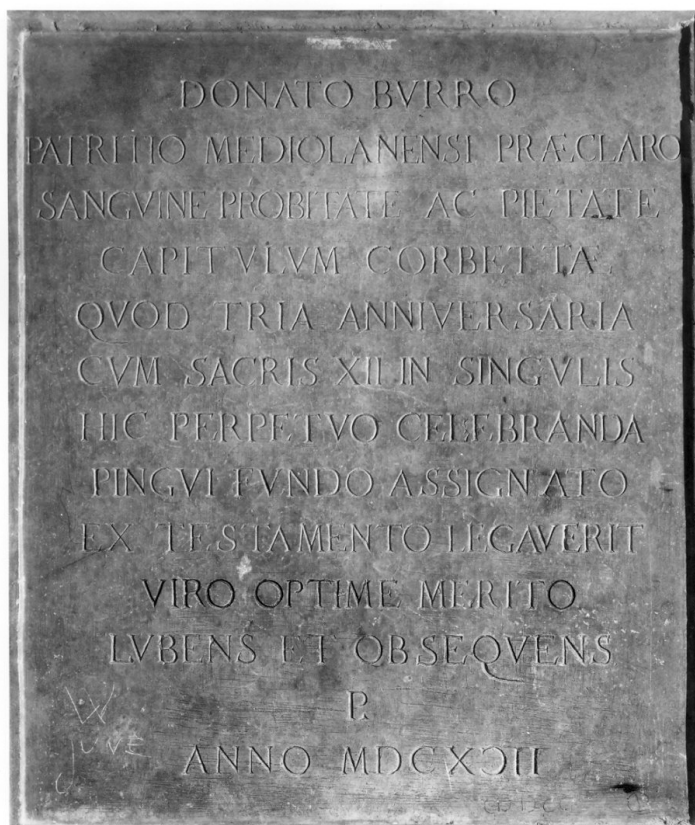 DONATO BVRRO
PATRITIO MEDIOLANENSI PRÆCLARO
SANGVINE PROBITATE AC PIETATE
CAPITVLVM CORBETTÆ
QVOD TRIA ANNIVERSARIA
CVM SACRIS XII IN SINGVLIS
HIC PERPETVO CELEBRANDA
PINGVI FVNDO ASSIGNATO
EX TESTAMENTO LEGAVERIT
VIRO OPTIME MERITO
LVBENS ET OBSEQVENS
P.
ANNO MDCXCIII
W
JUVE